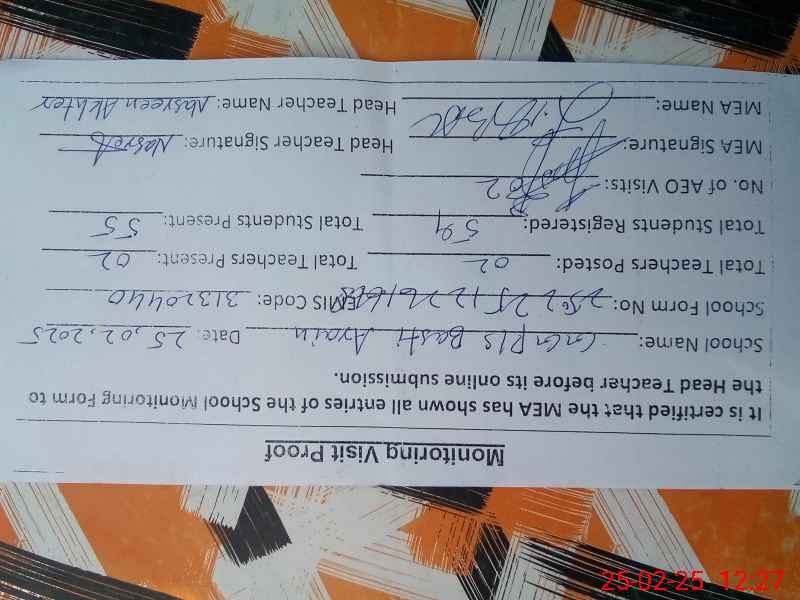 Monitoring Visit Proof
It is certified that the MEA has shown all entries of the School Monitoring Form to
the Head Teacher before its online submission.
School Name: GGPLS Basti Arain Date: 25,02,2025
School Form No: EMIS Code: 31320440
Total Teachers Posted: 02 Total Teachers Present: 02
Total Students Registered: 59 Total Students Present: 55
No. of AEO Visits: 02
MEA Signature: Head Teacher Signature:
MEA Name: Head Teacher Name: Nasreen Akhter
25-02-25 12:27